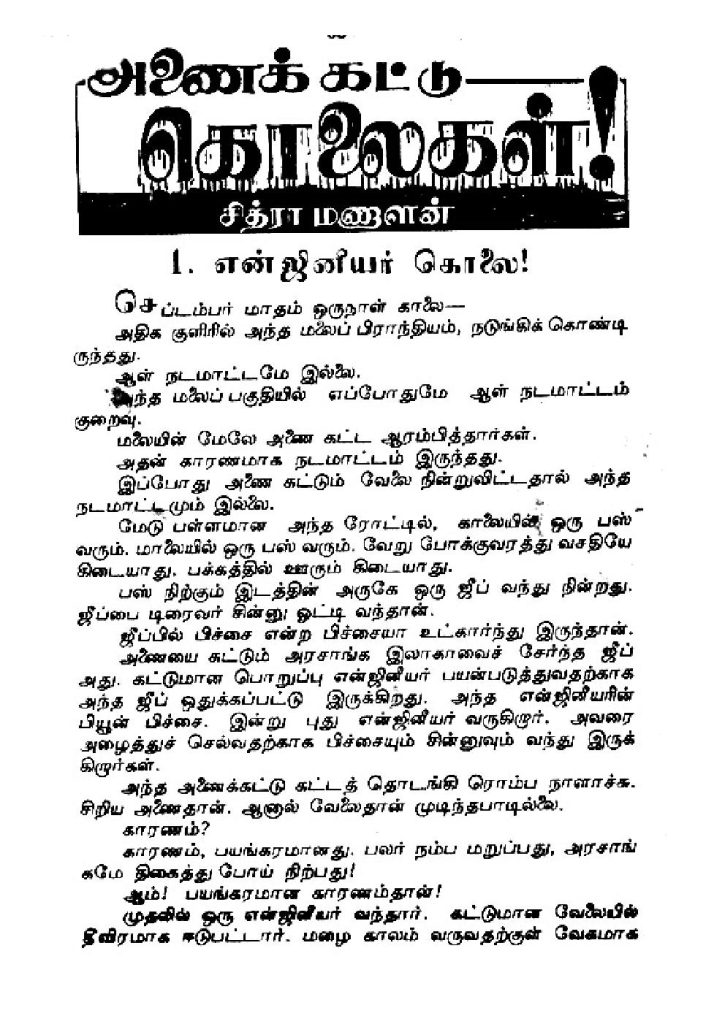 அணைக் கட்டு
கொலைகள்!
சித்ரா மணாளன்
1. என்ஜினீயர் கொலை!
செப்டம்பர் மாதம் ஒருநாள் காலை—
அதிக குளிரில் அந்த மலைப் பிராந்தியம், நடுங்கிக் கொண்டி
ருந்தது.
ஆள் நடமாட்டமே இல்லை.
அந்த மலைப் பகுதியில் எப்போதுமே ஆள் நடமாட்டம்
குறைவு.
மலையின் மேலே அணை கட்ட ஆரம்பித்தார்கள்.
அதன் காரணமாக நடமாட்டம் இருந்தது.
இப்போது அணை கட்டும் வேலை நின்றுவிட்டதால் அந்த
நடமாட்டமும் இல்லை.
மேடு பள்ளமான அந்த ரோட்டில், காலையில் ஒரு பஸ்
வரும். மாலையில் ஒரு பஸ் வரும். வேறு போக்குவரத்து வசதியே
கிடையாது. பக்கத்தில் ஊரும் கிடையாது.
பஸ் நிற்கும் இடத்தின் அருகே ஒரு ஜீப் வந்து நின்றது.
ஜீப்பை டிரைவர் சின்னு ஓட்டி வந்தான்.
ஜீப்பில் பிச்சை என்ற பிச்சையா உட்கார்ந்து இருந்தான்.
அணையை கட்டும் அரசாங்க இலாகாவைச் சேர்ந்த ஜீப்
அது. கட்டுமான பொறுப்பு என்ஜினீயர் பயன்படுத்துவதற்காக
அந்த ஜீப் ஒதுக்கப்பட்டு இருக்கிறது. அந்த என்ஜினீயரின்
பியூன் பிச்சை. இன்று புது என்ஜினீயர் வருகிறார். அவரை
அழைத்துச் செல்வதற்காக பிச்சையும் சின்னுவும் வந்து இருக்
கிறார்கள்.
அந்த அணைக்கட்டு கட்டத் தொடங்கி ரொம்ப நாளாச்சு.
சிறிய அணைதான். ஆனால் வேலைதான் முடிந்தபாடில்லை.
காரணம்?
காரணம், பயங்கரமானது. பலர் நம்ப மறுப்பது, அரசாங்
கமே திகைத்து போய் நிற்பது!
ஆம்! பயங்கரமான காரணம்தான்!
முதலில் ஒரு என்ஜினீயர் வந்தார். கட்டுமான வேலையில்
தீவிரமாக ஈடுபட்டார். மழை காலம் வருவதற்குள் வேகமாக